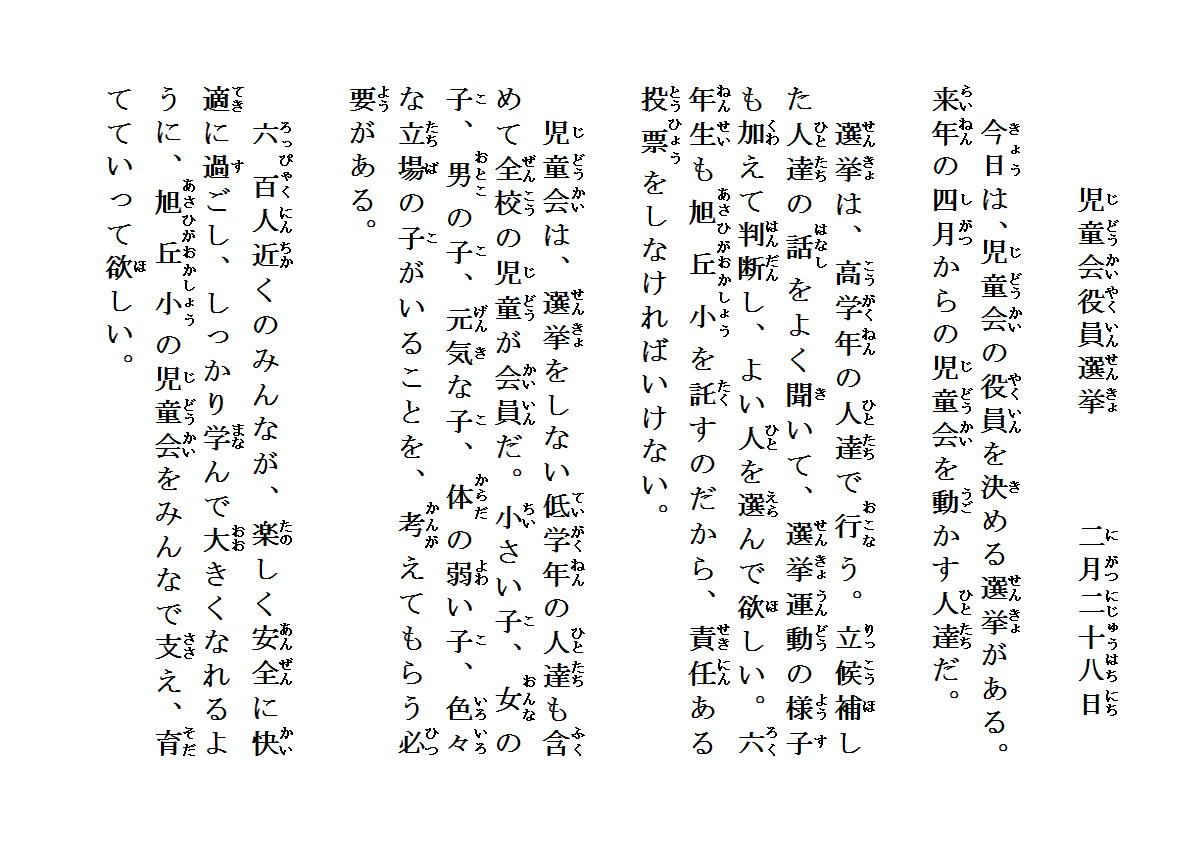 児童会役員選挙　　　二月二十八日
今日は、児童会の役員を決める選挙がある。
来年の四月からの児童会を動かす人達だ。
選挙は、高学年の人達で行う。立候補し
た人達の話をよく聞いて、選挙運動の様子
も加えて判断し、よい人を選んで欲しい。六
年生も旭丘小を託すのだから、責任ある
投票をしなければいけない。
児童会は、選挙をしない低学年の人達も含
めて全校の児童が会員だ。小さい子、女の
子、男の子、元気な子、体の弱い子、色々
な立場の子がいることを、考えてもらう必
要がある。
六百人近くのみんなが、楽しく安全に快
適に過ごし、しっかり学んで大きくなれるよ
うに、旭丘小の児童会をみんなで支え、育
てていって欲しい。